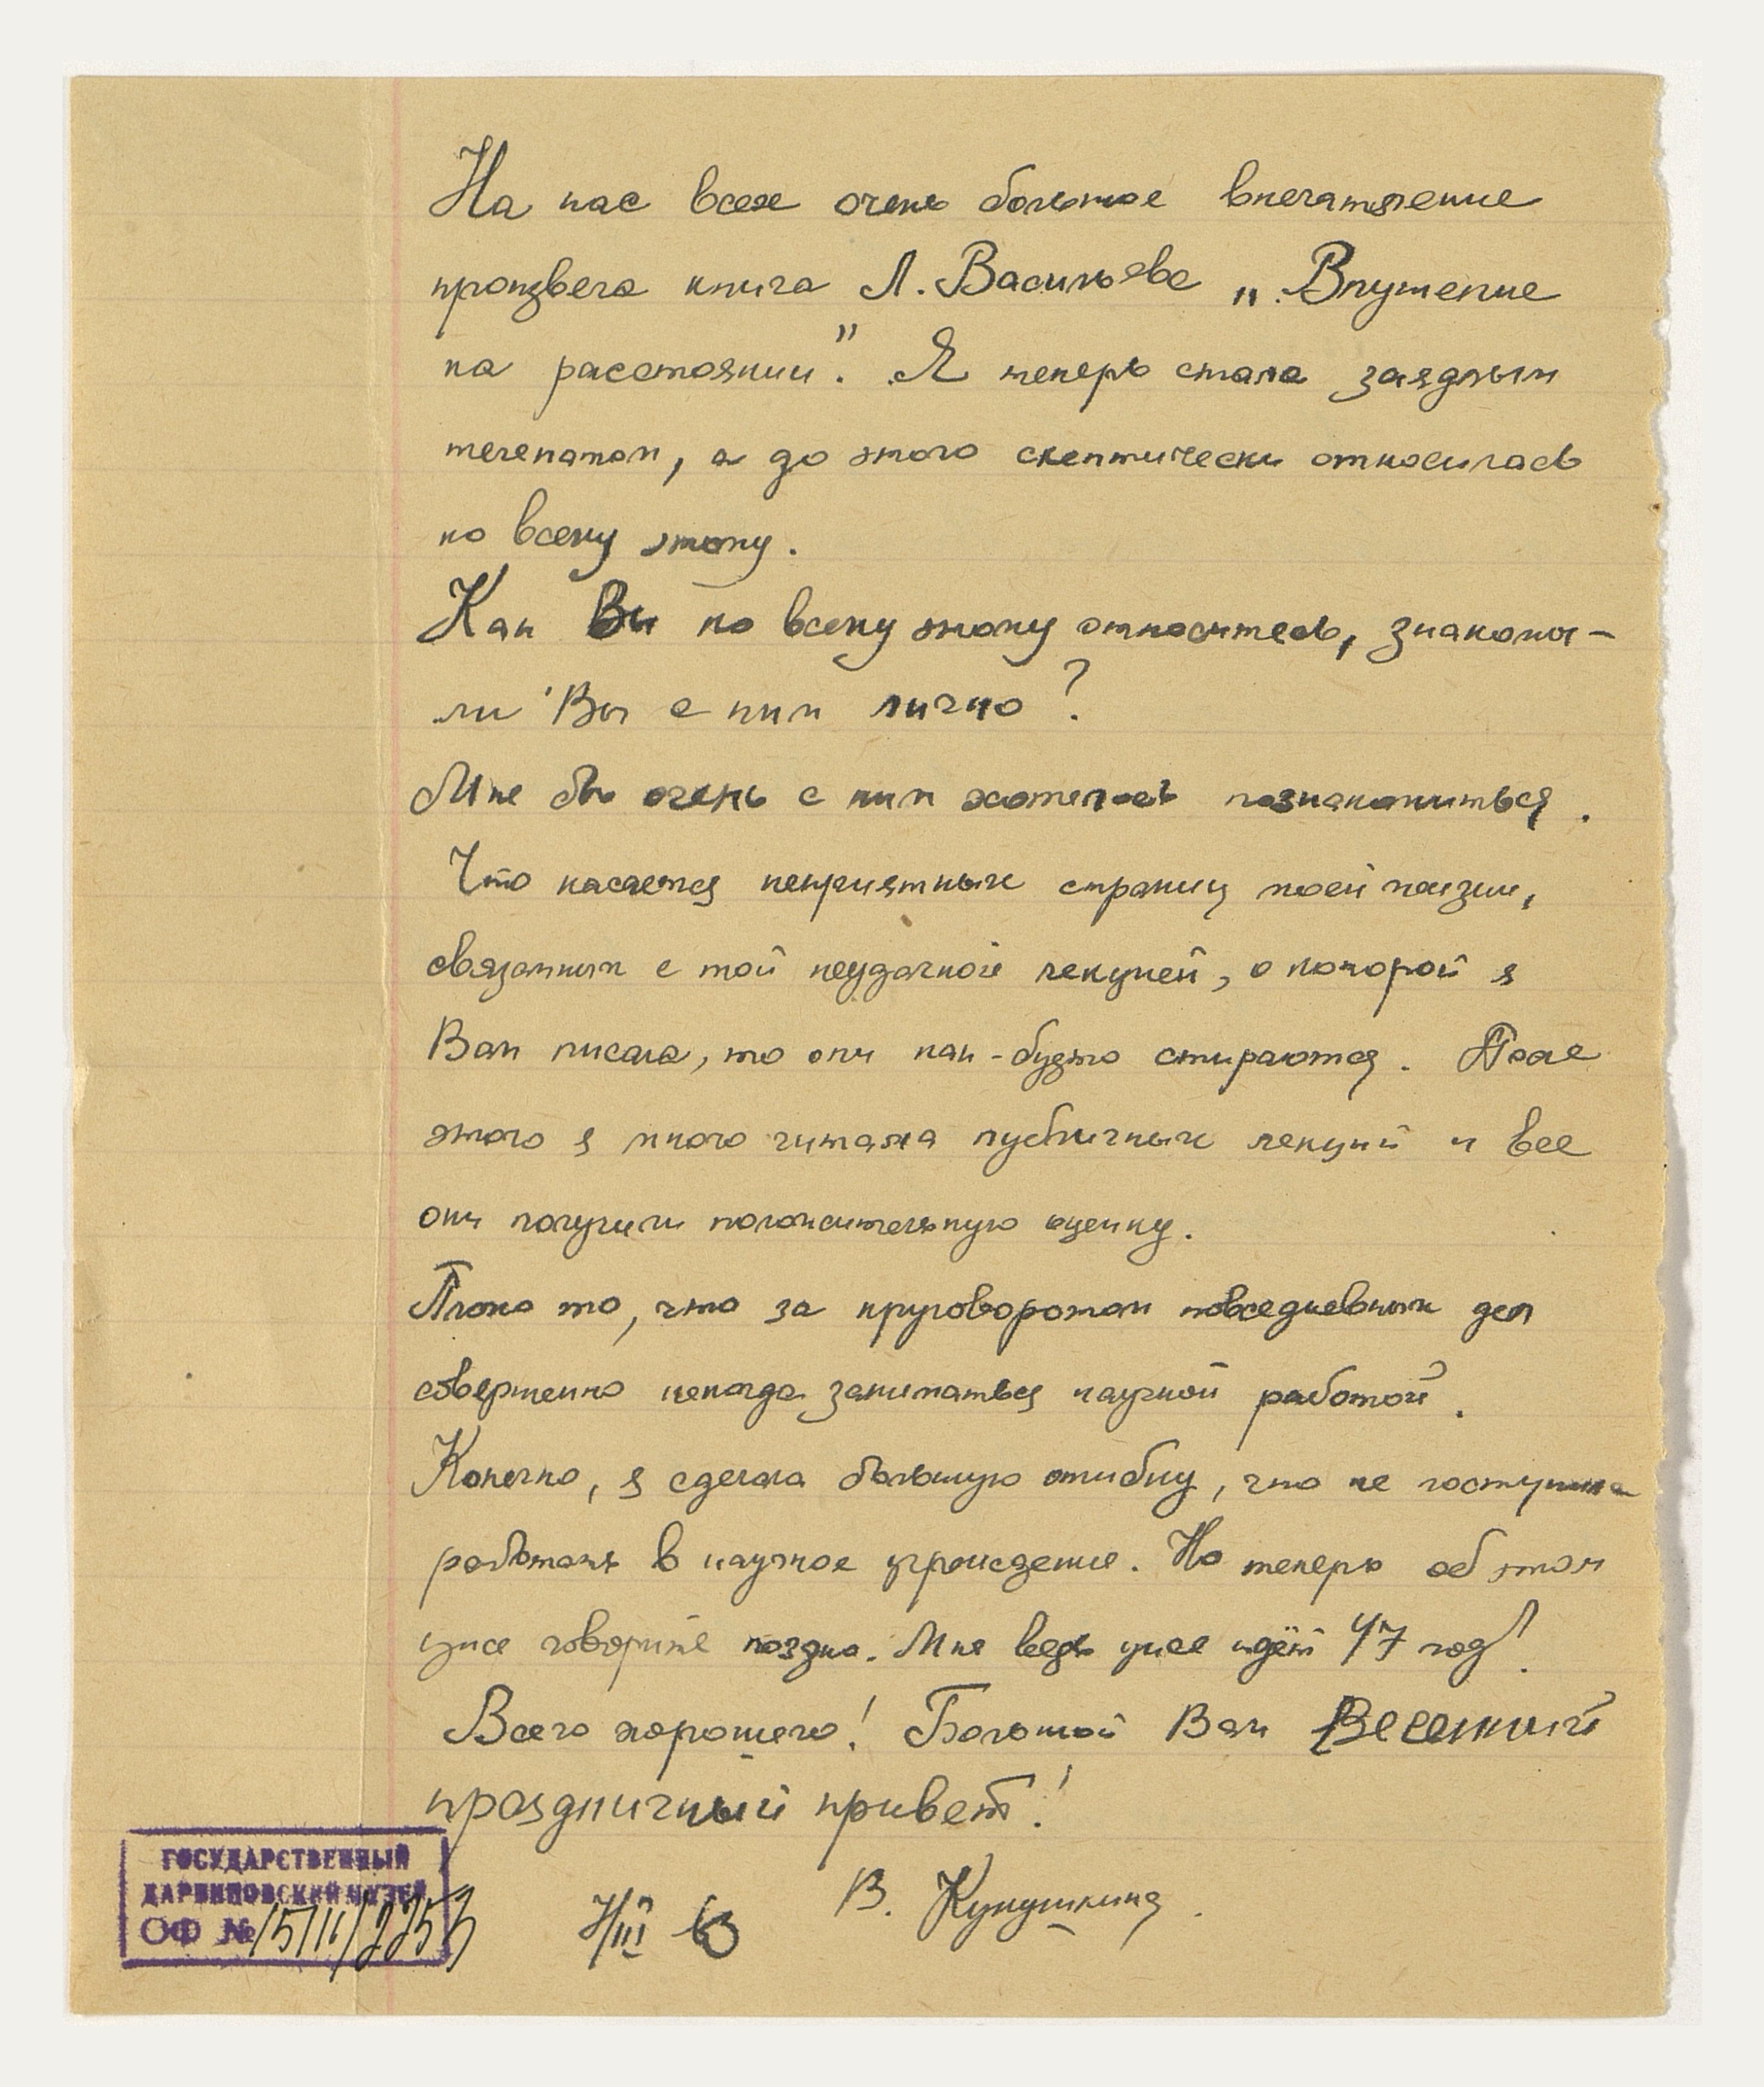 На нас всех очень большое впечатление
произвела книга Л. Васильева „Внушение
на расстоянии". Я теперь стала заядлым
телепатом, а до этого скептически относилась
ко всему этому.
Как Вы ко всему этому относитесь, знакомы-
ли Вы с ним лично?
Мне бы очень с ним хотелось познакомиться.
Что касается неприятных страниц моей жизни,
связанных с той неудачной лекцией, о которой я
Вам писала, то они как-будто стираются. После
этого я много читала публичных лекций и все
они получили положительную оценку.
Плохо то, что за круговоротом повседневных дел
совершенно некогда заниматься научной работой.
Конечно, я сделала большую ошибку, что не поступила
работать в научное учреждение. Но теперь об этом
уже говорить поздно. Мне ведь уже идёт 47 год!
Всего хорошего! Большой Вам Весенний
праздничный привет!
В. Кукушкина.
7/III 63
ГОСУДАРСТВЕННЫЙ
ДАРВИНОВСКИЙ МУЗЕЙ
ОФ № 15111/2253